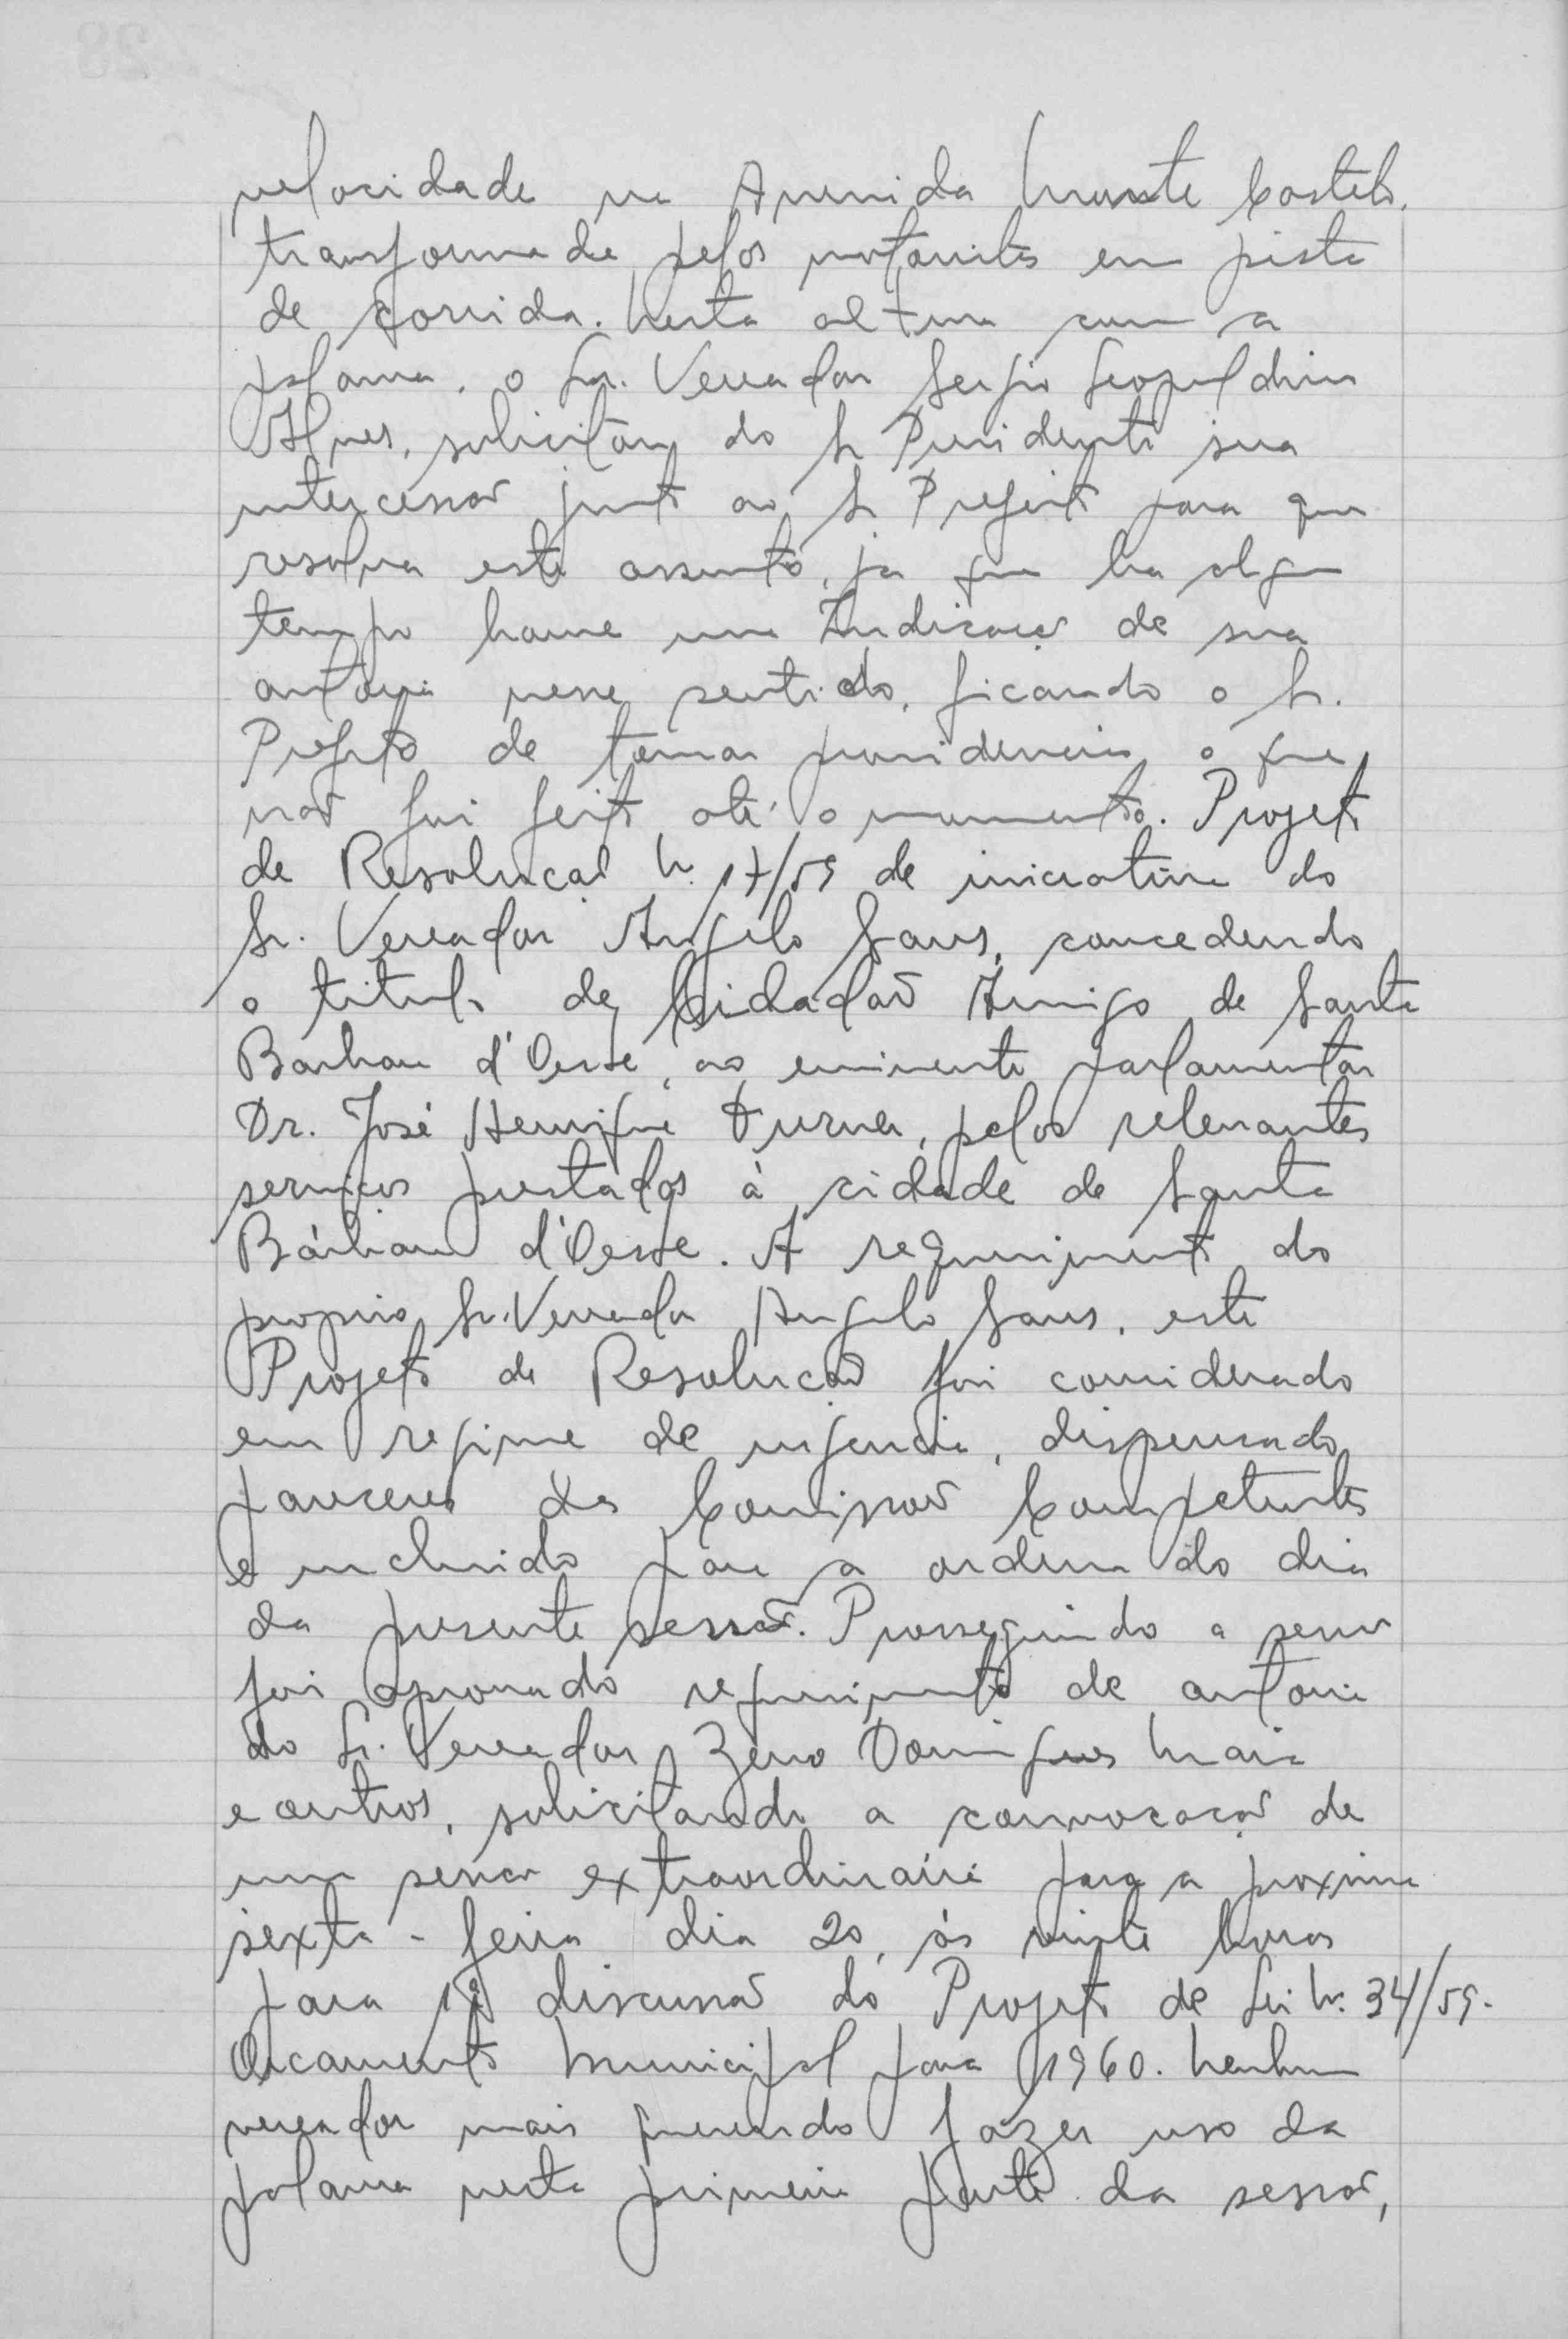 velocidade na Avenida Monte Castelo,
transformada pelos motoristas em pista
de corrida. Nesta altura com a
palavra, o Sr. Vereador Sergio Leopoldino
Alves, solicitou do Sr Presidente sua
intercessão junto ao Sr Prefeito para que
resolva este assunto, ja que ha algum
tempo houve uma Indicação de sua
autoria nesse sentido, ficando o Sr.
Prefeito de tomar providencia o que
não foi feito até o momento. Projeto
de Resolução N. 17/59 de iniciativa do
Sr. Vereador Angelo Sans, concedendo
o titulo de Cidadão Amigo de Santa
Barbara d'Oeste, ao eminente parlamentar
Dr. José Henrique Turner, pelos relevantes
serviços prestados à cidade de Santa
Bárbara d'Oeste. A requerimento do
proprio Sr. Vereador Angelo Sans, este
Projeto de Resolução foi considerado
em regime de urgencia, dispensado
pareceres das Comissões Competentes
e incluido para a ordem do dia
da presente sessão. Prosseguindo a sessão
foi aprovado requerimento de autoria
do Sr. Vereador Zeno Domingues Maia
e outros, solicitando a convocação de
uma sessão extraordinária para a proxima
sexta-feira dia 20, às vinte horas
para 1ª discussão do Projeto de Lei N. 34/59.
Orçamento Municipal para 1960. Nenhum
vereador mais querendo fazer uso da
palavra nesta primeira parte da sessão,